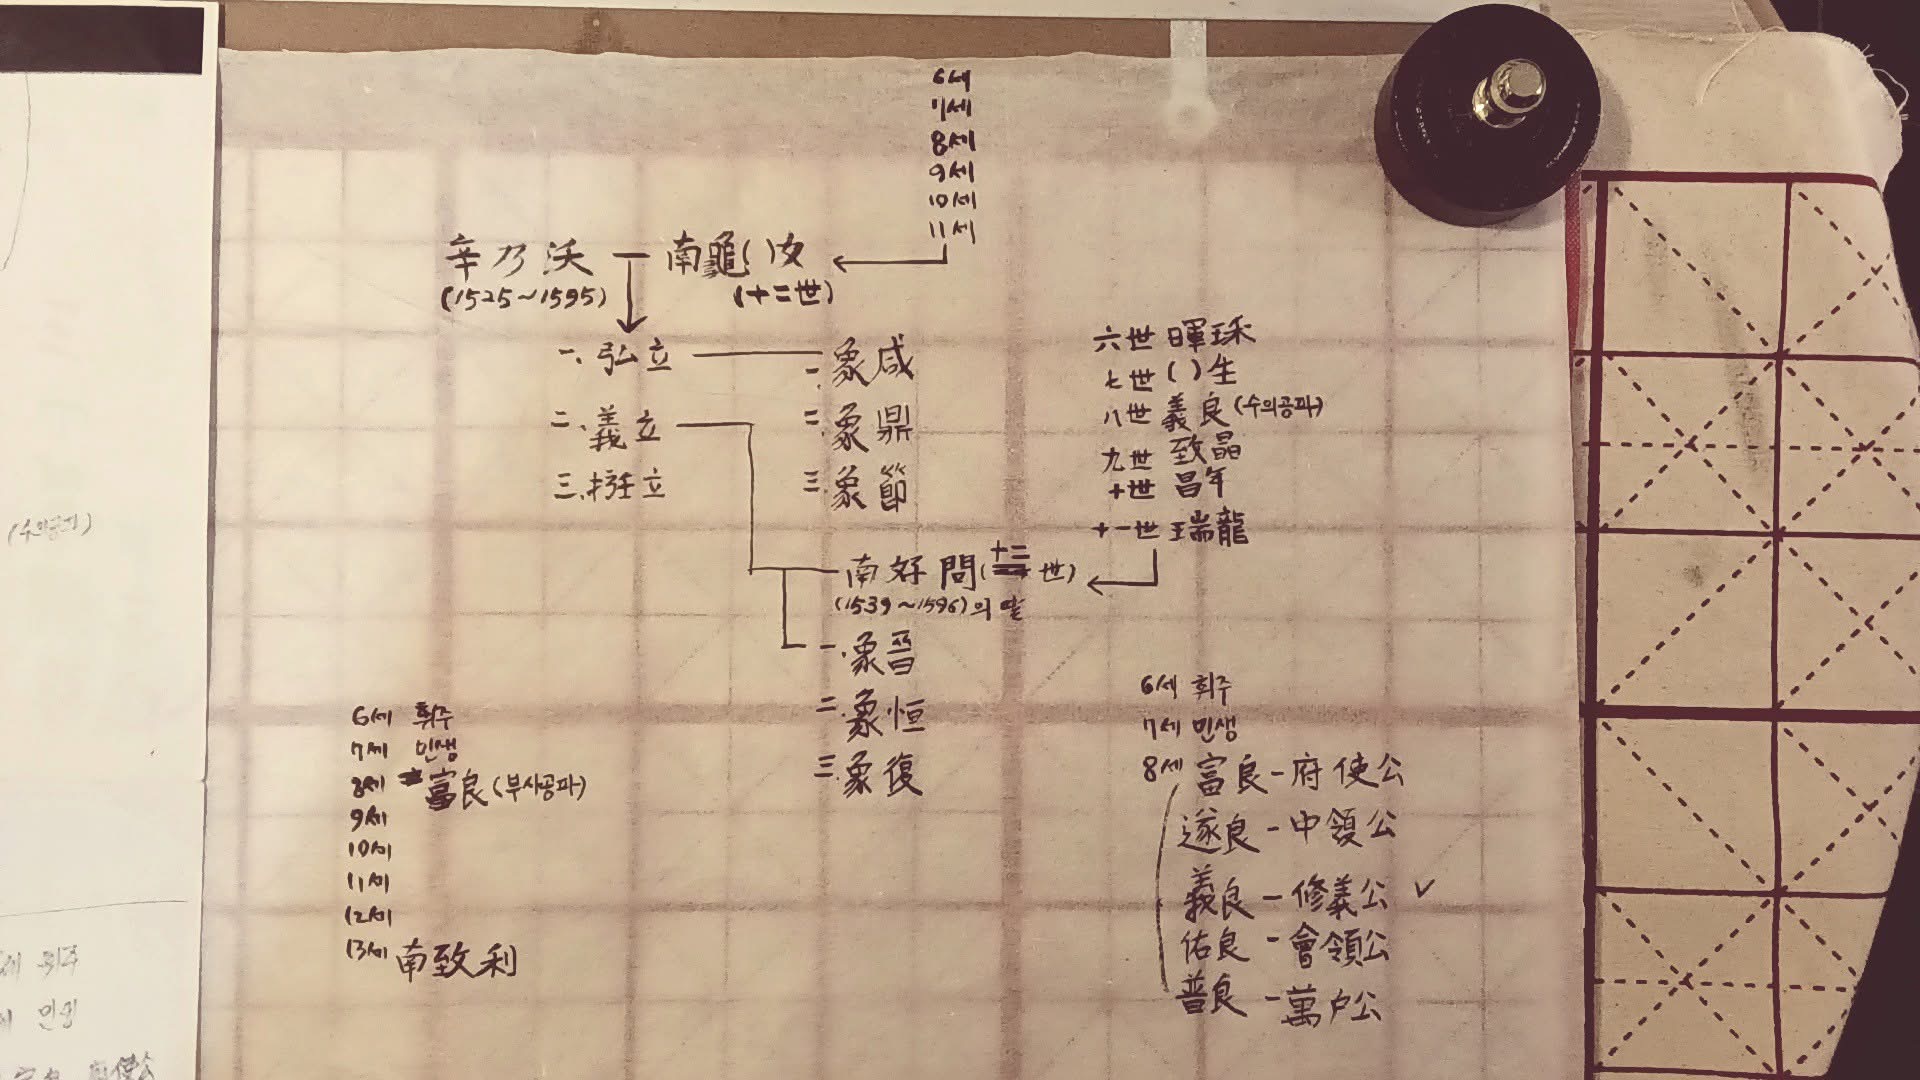 6세
7세
8세
9세
10세
11세
辛乃沃 南龜( )女
(1525~1595) (十二世)
一. 弘立
二. 義立
三. 立
一. 象咸
二. 象鼎
三. 象節
南好問(十二世)
(1539~1596)의 딸
一. 象晋
二. 象恒
三. 象復
六世 暉珠
七世 ( )生
八世 義良(수의공파)
九世 致晶
十世 昌年
十一世 瑞龍
6세 휘주
7세 민생
8세 富良(부사공파)
9세
10세
11세
12세
13세 南致利
6세 휘주
7세 민생
8세 富良-府使公
遂良-中領公
義良-修義公 ✓
佑良-會領公
普良-萬户公
(수의공파)
세 휘주
민생